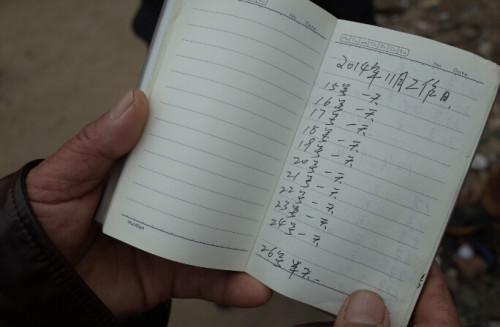 No. Date
No. Date
2014年11月工作日
15号 一天
16号 一天
17号 一天
18号 一天
19号 一天
20号 一天
21号 一天
22号 一天
23号 一天
24号 一天
26号 半天